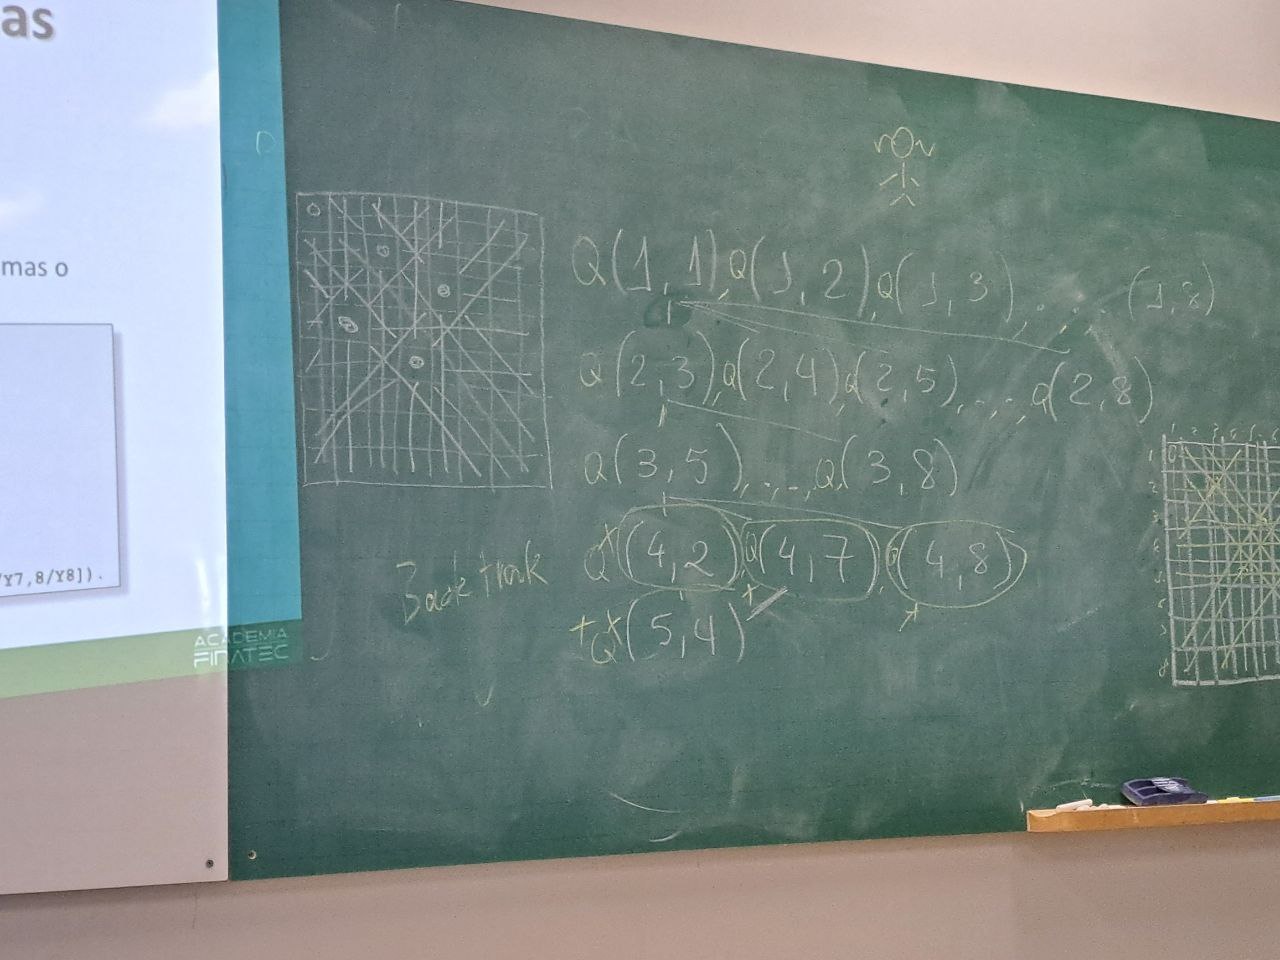 as
mas o
/Y7,8/Y8]).
ACADEMIA
FINATEC
Q(1,1),Q(1,2),Q(1,3),...,(1,8)
Q(2,3),Q(2,4),Q(2,5),...,Q(2,8)
Q(3,5),...,Q(3,8)
Back track
Q(4,2),Q(4,7),Q(4,8)
Q(5,4)